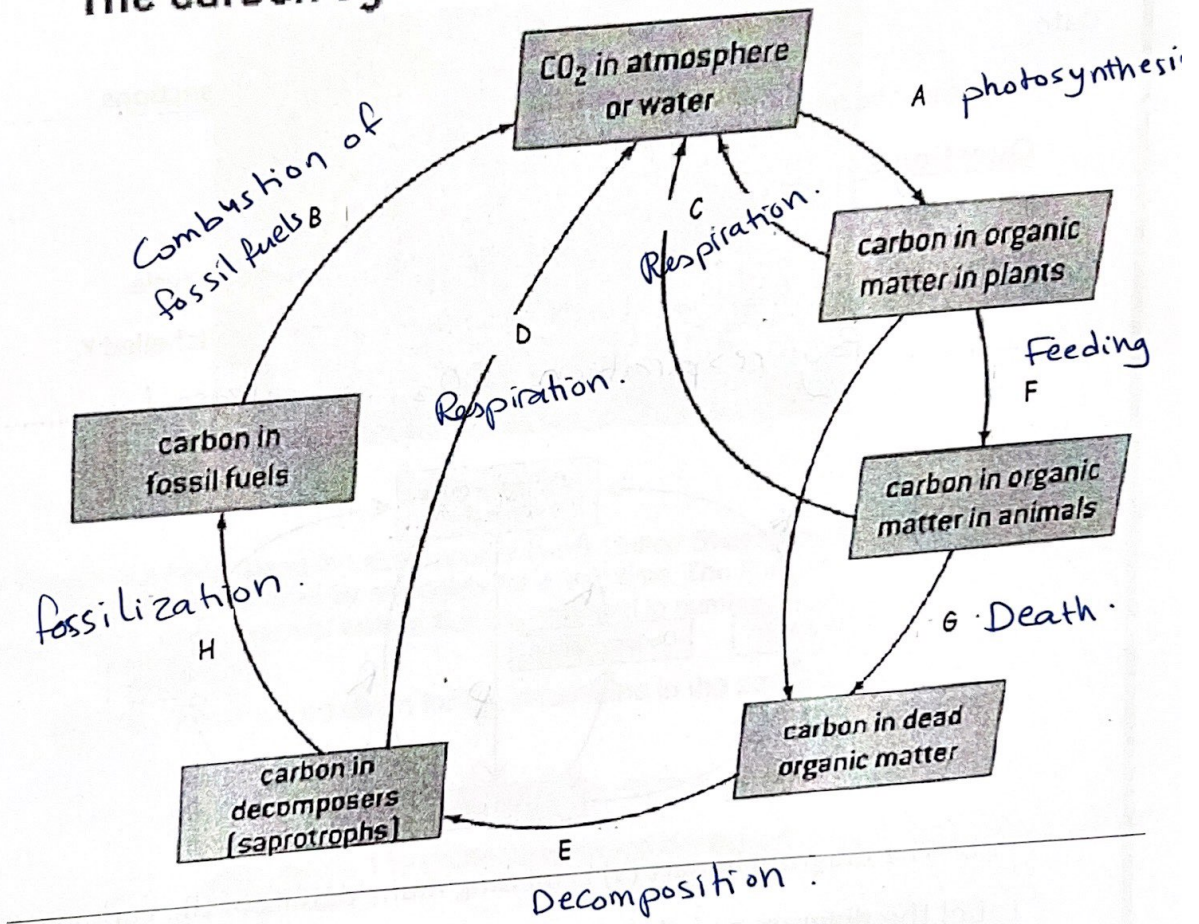 CO₂ in atmosphere
or water
A photosynthesi
Combustion of
fossil fuels B
C
Respiration.
carbon in organic
matter in plants
D
Respiration.
Feeding
F
carbon in
fossil fuels
carbon in organic
matter in animals
fossilization.
H
G Death.
carbon in dead
organic matter
carbon in
decomposers
(saprotrophs)
E
Decomposition.